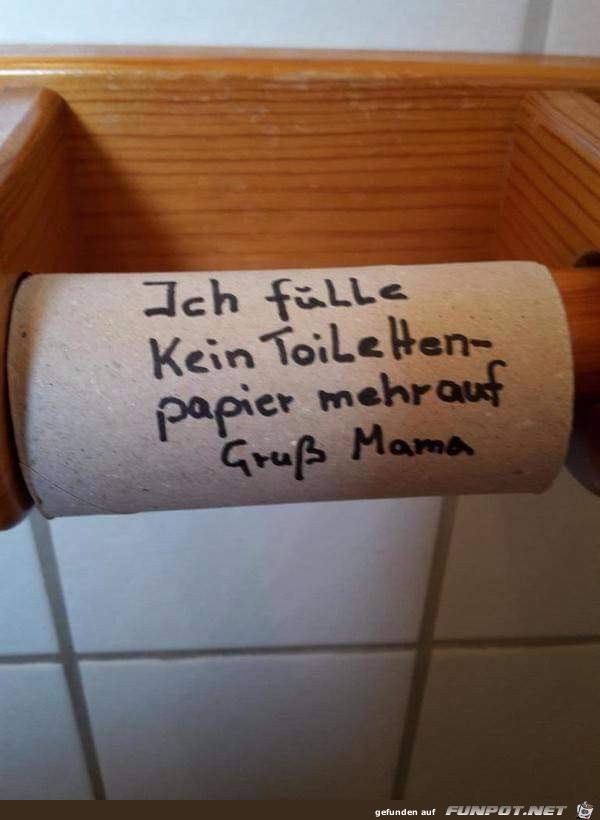 Ich fülle
Kein Toiletten-
papier mehr auf
Gruß Mama
gefunden auf FUNPOT.NET